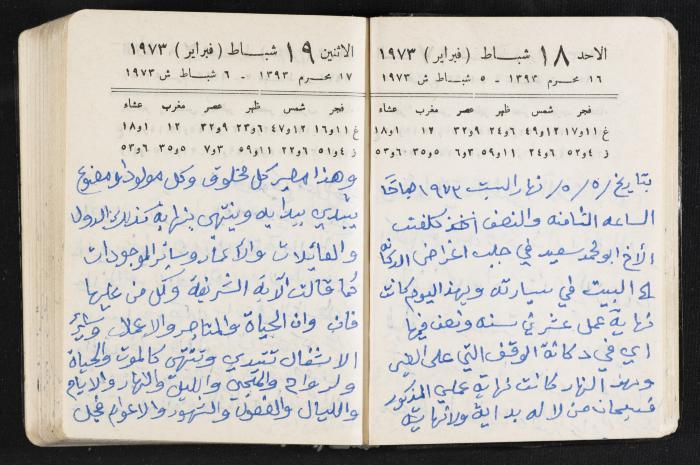 الاحد ١٨ شباط ( فبراير ) ١٩٧٣
١٦ محرم ١٣٩٣ - ٥ شباط ش ١٩٧٣
فجر شمس ظهر عصر مغرب عشاء
غ ١١و١٧ ١٢و٤٩ ٦و٢٤ ٩و٣٢ ١٢ ١و١٨
ز ٤و٥٢ ٦و٢٤ ١١و٥٩ ٣و٦ ٥و٣٥ ٦و٥٣
بتاريخ ٥/٥/ ١٩٧٣ نهار السبت صباحًا
الساعه الثامنه والنصف كلفت
الأخ ابو محمد سعيد في جلب اغراضي
الى البيت في سيارته وبهذا اليوم كانت
نهاية عمل عشرين سنه ونصف فيها
اي في دكانة الوقف التي على
وبهذا النهار كانت نهاية عملي المذكور
فسبحان من لا له بداية ولا نهاية
الاثنين ١٩ شباط ( فبراير ) ١٩٧٣
١٧ محرم ١٣٩٣ - ٦ شباط ش ١٩٧٣
فجر شمس ظهر عصر مغرب عشاء
غ ١١و١٦ ١٢و٤٧ ٦و٢٣ ٩و٣٢ ١٢ ١و١٨
ز ٤و٥١ ٦و٢٢ ١١و٥٩ ٣و٧ ٥و٣٥ ٦و٥٣
وهذا مصير كل مخلوق وكل مولود ومصنوع
يبتدي ببدايه وينتهي بنهاية كذلك الدول
والعائلات والاعمار وسائر الموجودات
كما قالت الآية الشريفة وكل من عليها
فان وان الحياة والمتاجر والاعمال وسائر
الاشغال تبتدي وتنتهي كالموت والحياة
والليل والنهار والايام
والليال والفصول والشهور والاعوام